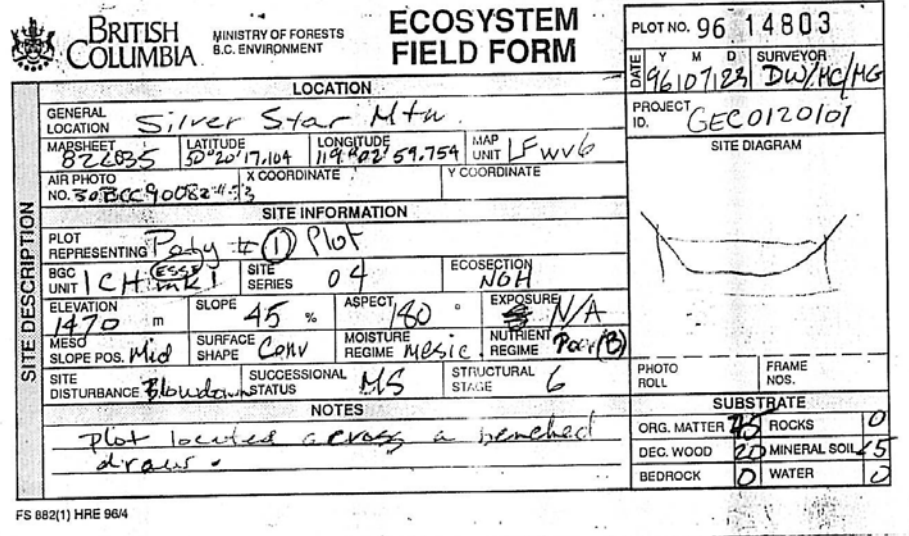 BRITISH COLUMBIA
MINISTRY OF FORESTS
B.C. ENVIRONMENT
ECOSYSTEM FIELD FORM
PLOT NO. 96 14803
DATE Y M D 96 07 23 SURVEYOR DW/MC/MG
PROJECT ID. GEC0120101
SITE DIAGRAM
SITE DESCRIPTION
LOCATION
GENERAL LOCATION Silver Star Mtn.
MAPSHEET 82L035 LATITUDE 50°20'17.104 LONGITUDE 119°02'59.754 MAP UNIT
AIR PHOTO NO. X COORDINATE Y COORDINATE
SITE INFORMATION
PLOT REPRESENTING # 1 Plot
BGC UNIT ICH mk1 ESSF SITE SERIES 04 ECOSECTION NOH
ELEVATION 1470 m SLOPE 45 % ASPECT 180 ° EXPOSURE N/A
MESO SLOPE POS. Mid SURFACE SHAPE Conv MOISTURE REGIME Mesic. NUTRIENT REGIME Poor (B)
SITE DISTURBANCE Blowdown SUCCESSIONAL STATUS MS STRUCTURAL STAGE 6
NOTES
Plot located across a benched
draw.
PHOTO ROLL FRAME NOS.
SUBSTRATE
ORG. MATTER 75 ROCKS 0
DEC. WOOD 20 MINERAL SOIL 5
BEDROCK 0 WATER 0
FS 882(1) HRE 96/4